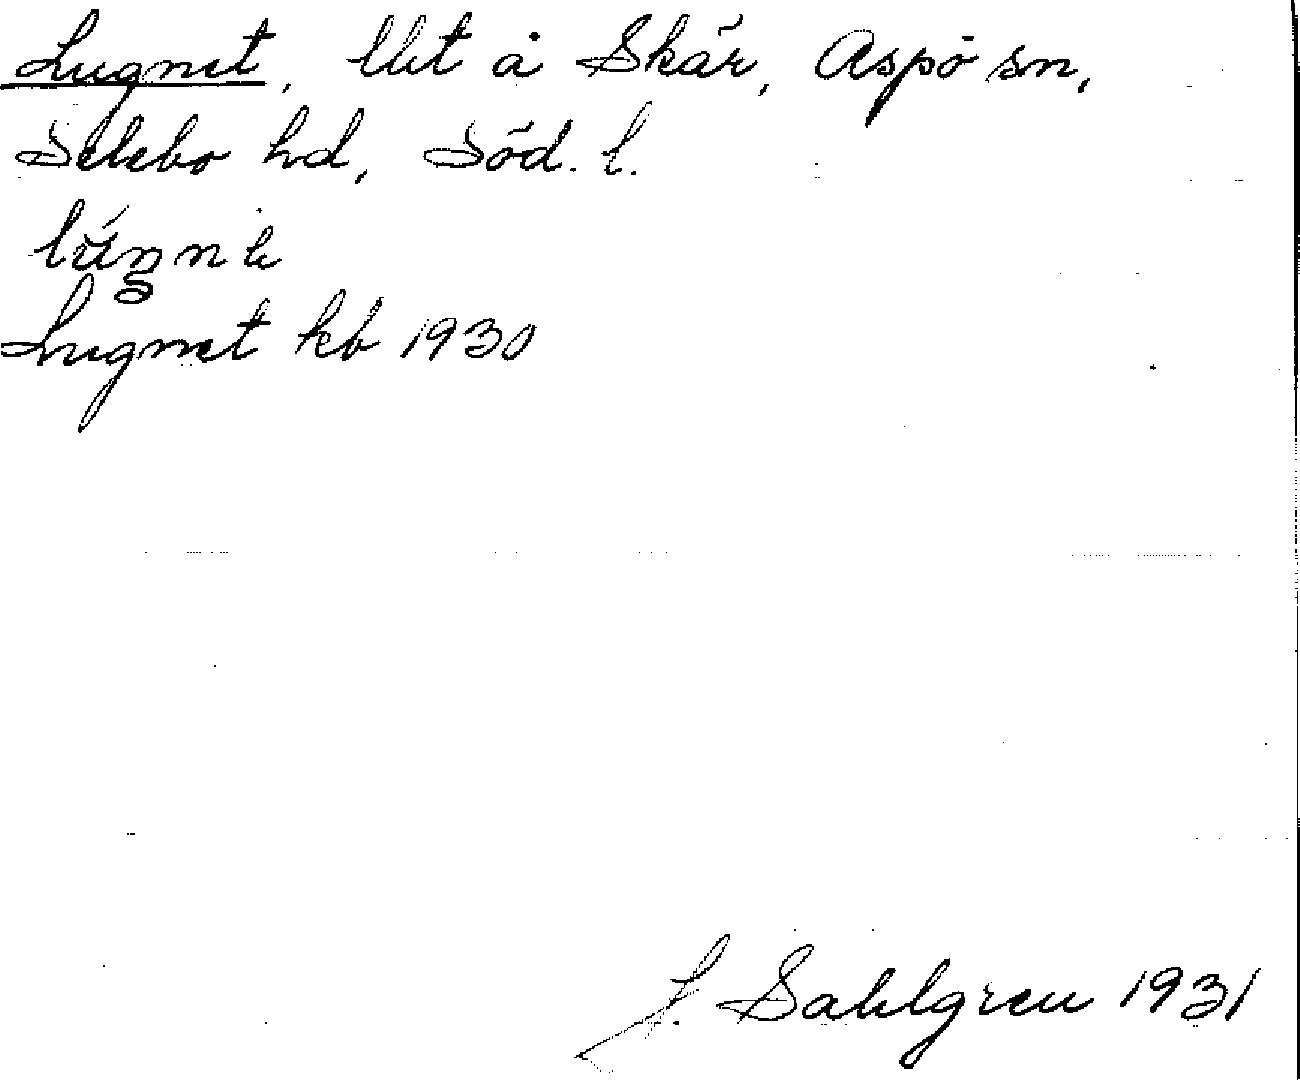 Lugnet, lht å Skär, Aspö sn,
Selebo hd, Söd. l.
Lugnet kb 1930
J. Sahlgren 1931